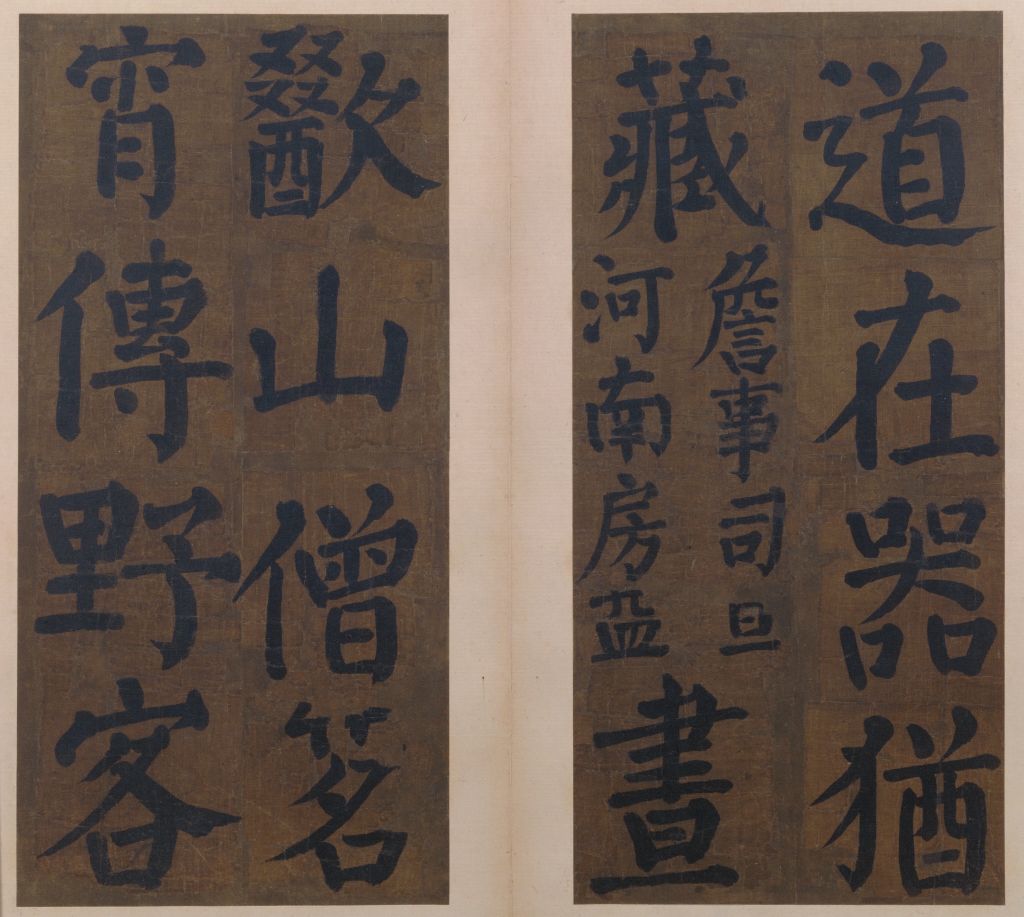 道在器猶
藏
詹事司直
河南房益
晝
歠山僧茗
宵傳野客